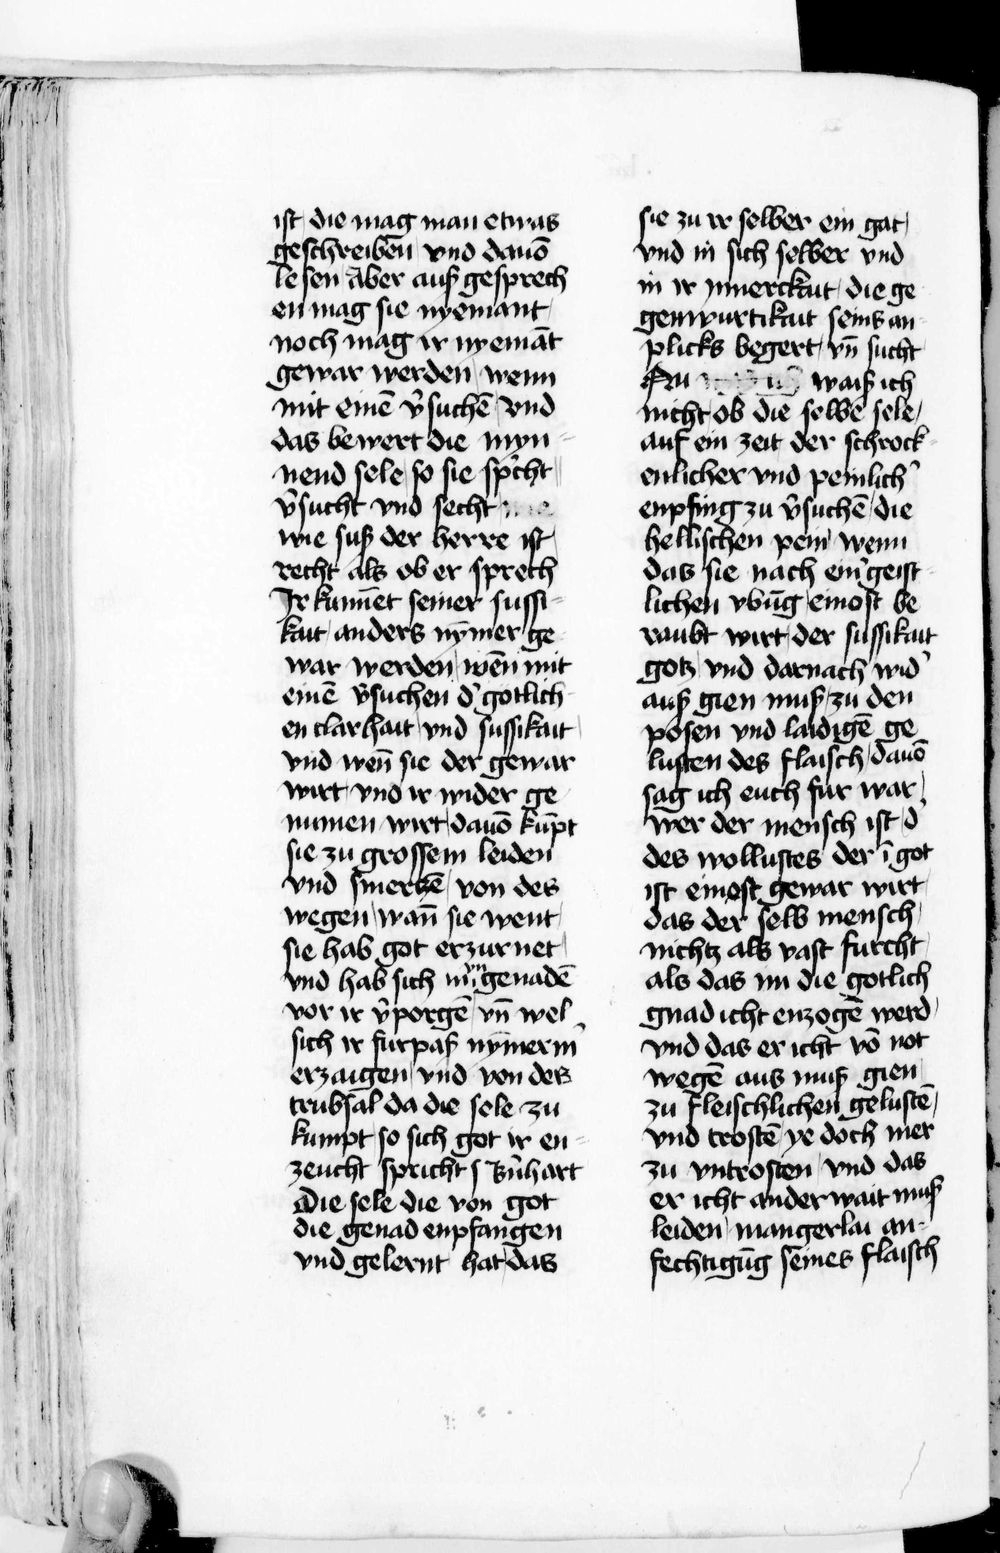 ist die mag man etwas
geschreiben vnd dauō
lesen Aber auß gesprech
en mag sie nyemant
noch mag ir nyemāt
gewar werden wenn
mit einē v̉suchē vnd
das bewert die myn-
nend sele so sie sp̉cht
v̉sucht vnd secht
wie suß der herre ist
recht als ob er sprech
Ir kum̄et seiner sussi-
kait anders nym̄er ge
war werden wēn mit
einē v̉suchen d̉ gotlich
en clarhait vnd sussikait
vnd wen̄ sie der gewar
wirt vnd ir wider ge
numen wirt dauō kūpt
sie zu grossem leiden
vnd smerczē von des
wegen wan̄ sie went
sie hab got erzurnet
vnd hab sich genadē
vor ir v̉porgē vn̄ wel
sich ir furpaß nym̄erm̉
erzaigen vnd von des
trubsal da die sele zu
kumpt so sich got ir en-
zeucht spricht s Bn̉hart
Die sele die von got
die genad enpfangen
vnd gelernt hat das
sie zu ir selber ein gat
vnd in sich selber vnd
in ir ynnerckait die ge
genwurtikait seins an
plicks begert vn̄ sucht
Nu waiß ich
nicht ob die selbe sele
auf ein zeit der schrock-
enlicher vnd peinlich̉
enpfing zu v̉suchē die
hellischen pein wenn
das sie nach ein̉ geist-
lichen vbūg einost be
raubt wirt der sussikait
gotz vnd darnach wid̉
auß gien muß zu den
posen vnd laidigē ge
lusten des flaisch dauō
sag ich euch fur war
wer der mensch ist d̉
des wollustes der ī got
ist einost gewar wirt
das der selb mensch
nichtz als vast furcht
als das im die gotlich
gnad icht enzogē werd
vnd das er icht vō not
wegē aus muß gien
zu fleischlichen gelustē
vnd trostē ye doch mer
zu vntrosten vnd das
er icht anderwait muß
leiden mangerlai an-
fechtigūg seines flaisch